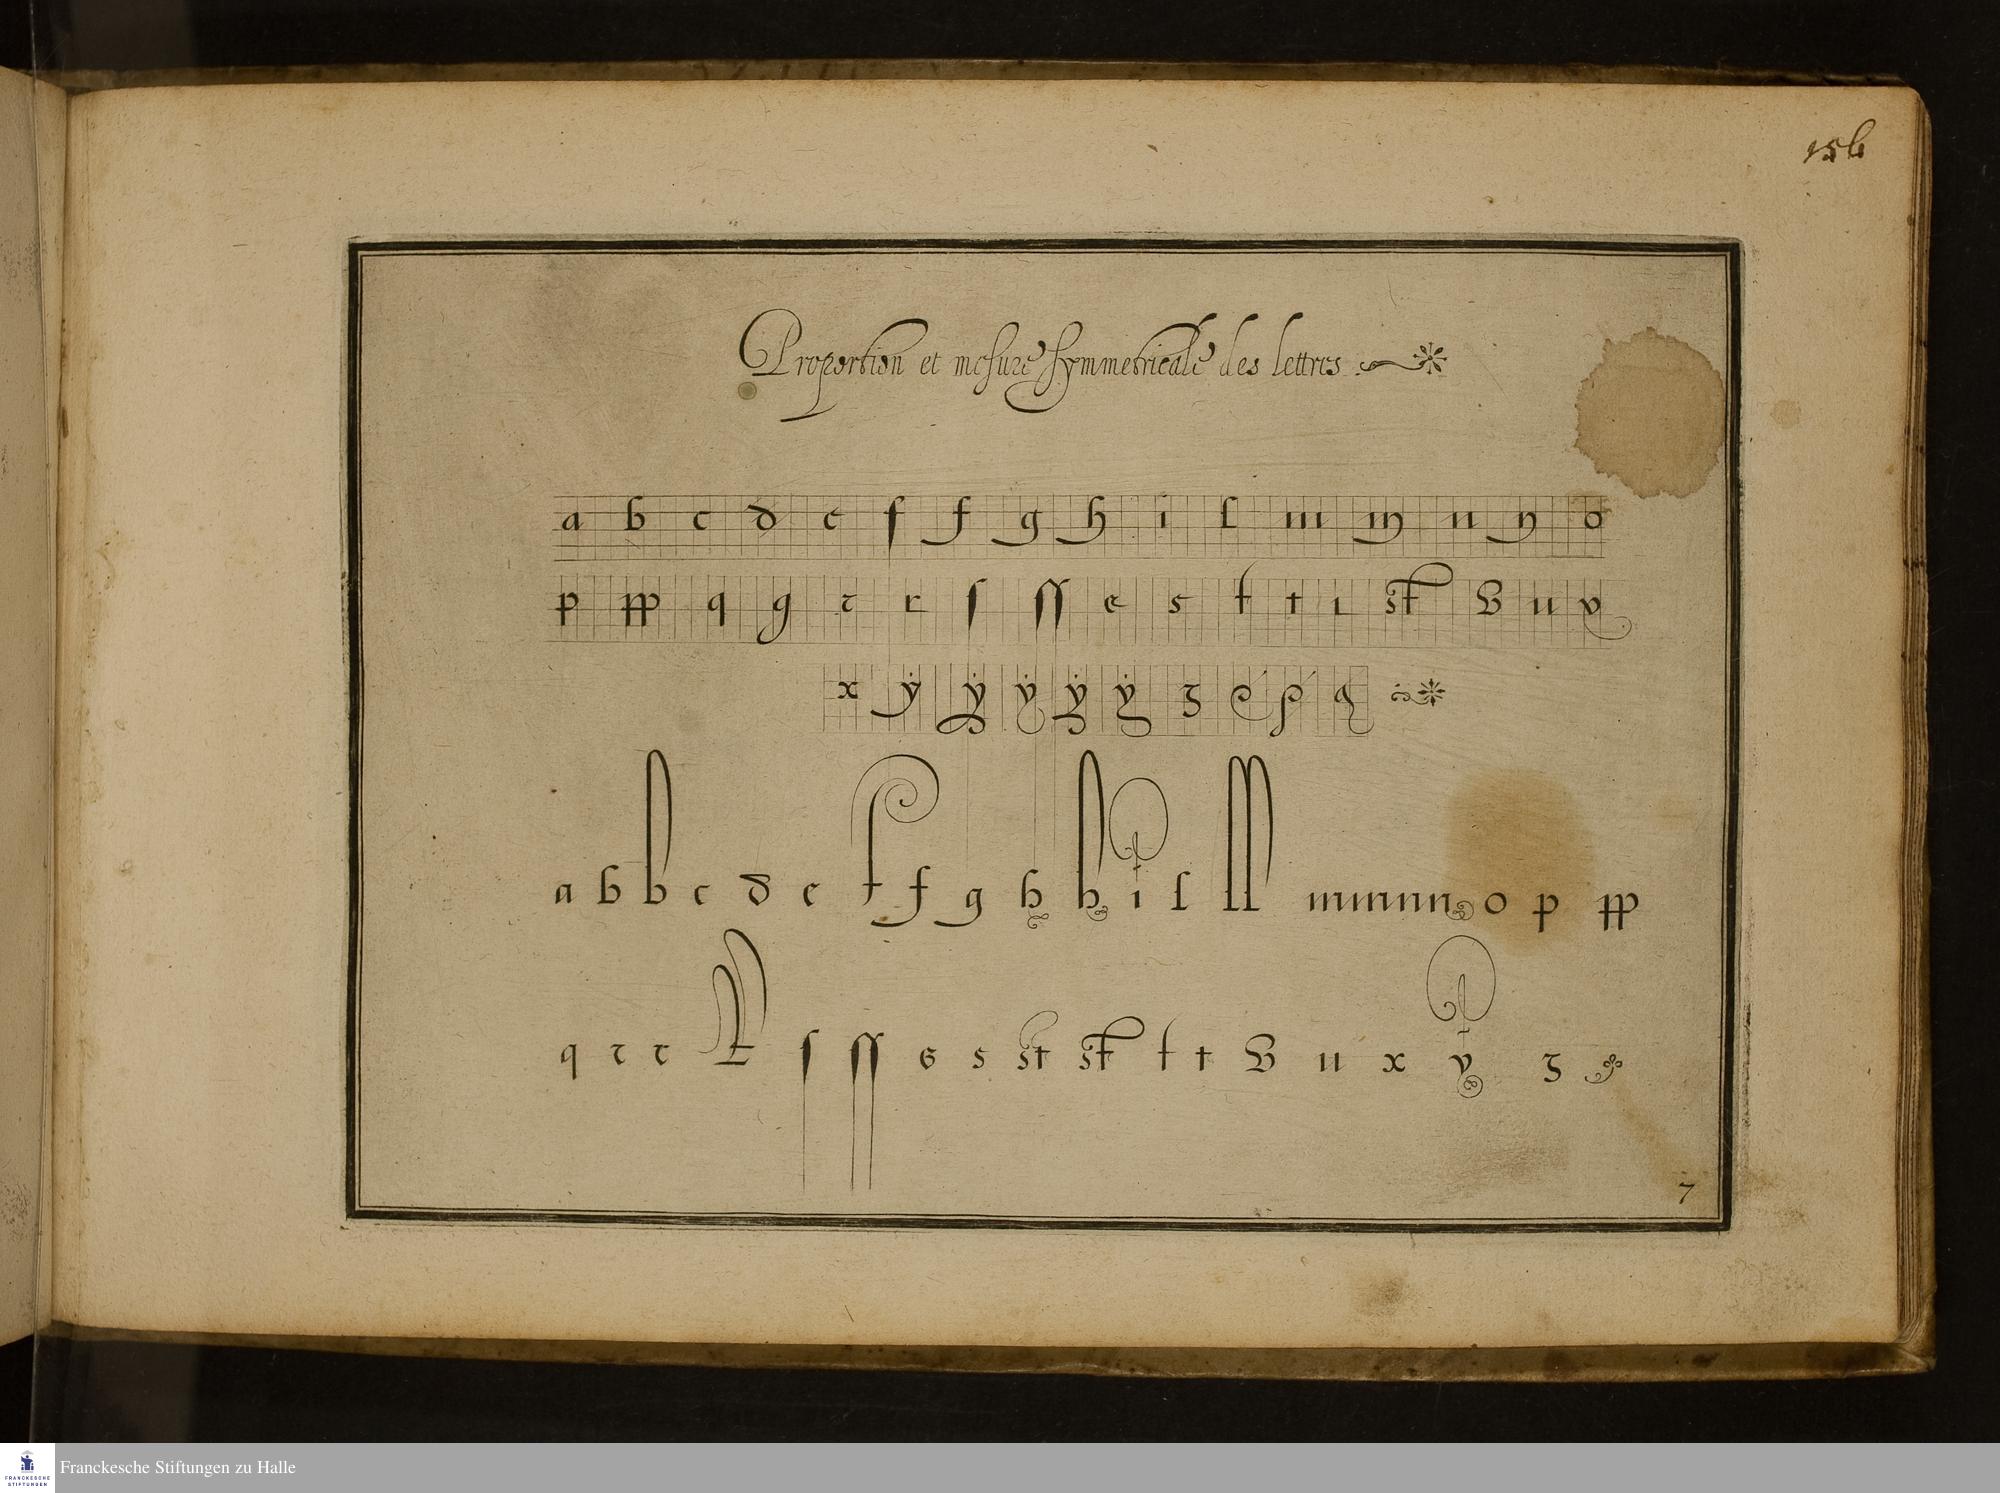 156
Proportion et mesure symmetricale des lettres
a b c d e f f g h i l m m n n o
p pp q g r r ſ ſſ e s t t i st v u v
x ÿ ÿ ÿ ÿ ÿ z
a b b c d e f f g h h i l ll m m n n o p pp
q r r ſ ſſ s s st st t t v u x y z
7
FRANCKESCHE STIFTUNGEN
Franckesche Stiftungen zu Halle